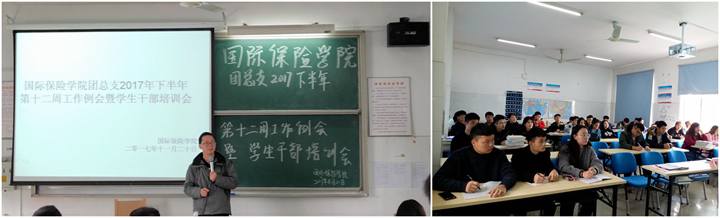 国际保险学院团总支2017年下半年
第十二周工作例会暨学生干部培训会
国际保险学院
二零一七年十一月二十日
国际保险学院
团总支2017下半年
第十二周工作例会
暨 学生干部培训会